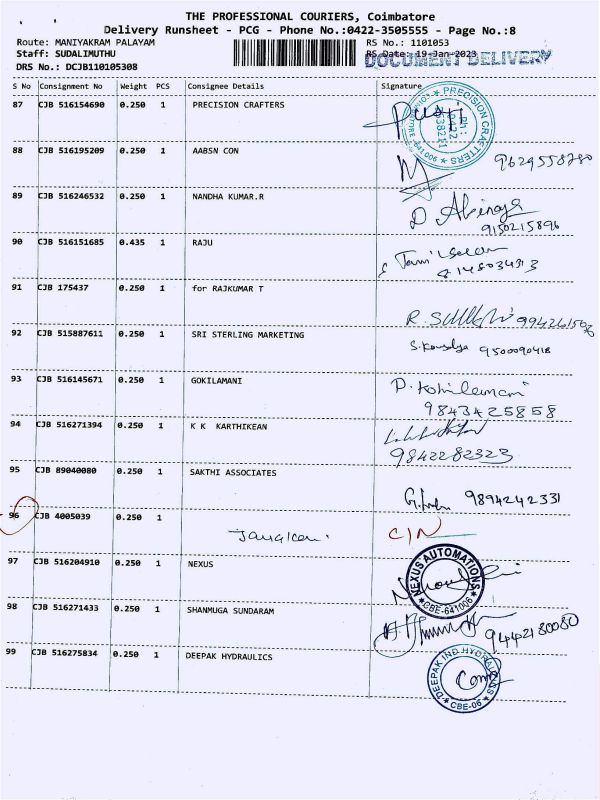 THE PROFESSIONAL COURIERS, Coimbatore
Delivery Runsheet - PCG - Phone No.:0422-3505555 - Page No.:8
Route: MANIYAKRAM PALAYAM RS No.: 1101053
Staff: SUDALIMUTHU RS Date: 19-Jan-2023
DOCUMENT DELIVERY
DRS No.: DCJB110105308
S No Consignment No Weight PCS Consignee Details Signature
87 CJB 516154690 0.250 1 PRECISION CRAFTERS
PRECISION CRAFTERS
88 CJB 516195209 0.250 1 AABSN CON 9629558780
89 CJB 516246532 0.250 1 NANDHA KUMAR.R D Abinaya
9150215896
90 CJB 516151685 0.435 1 RAJU
8148034313
91 CJB 175437 0.250 1 for RAJKUMAR T
92 CJB 515887611 0.250 1 SRI STERLING MARKETING S. Kousalya 9500090418
93 CJB 516145671 0.250 1 GOKILAMANI P. Kohilamani
9843425858
94 CJB 516271394 0.250 1 K K KARTHIKEAN
9842282323
95 CJB 89040080 0.250 1 SAKTHI ASSOCIATES 9894242331
96 CJB 4005039 0.250 1 C/N
97 CJB 516204910 0.250 1 NEXUS
NEXUS AUTOMATIONS
CBE-641006
98 CJB 516271433 0.250 1 SHANMUGA SUNDARAM 9442180080
99 CJB 516275834 0.250 1 DEEPAK HYDRAULICS
DEEPAK IND.HYDRAULICS
CBE-06